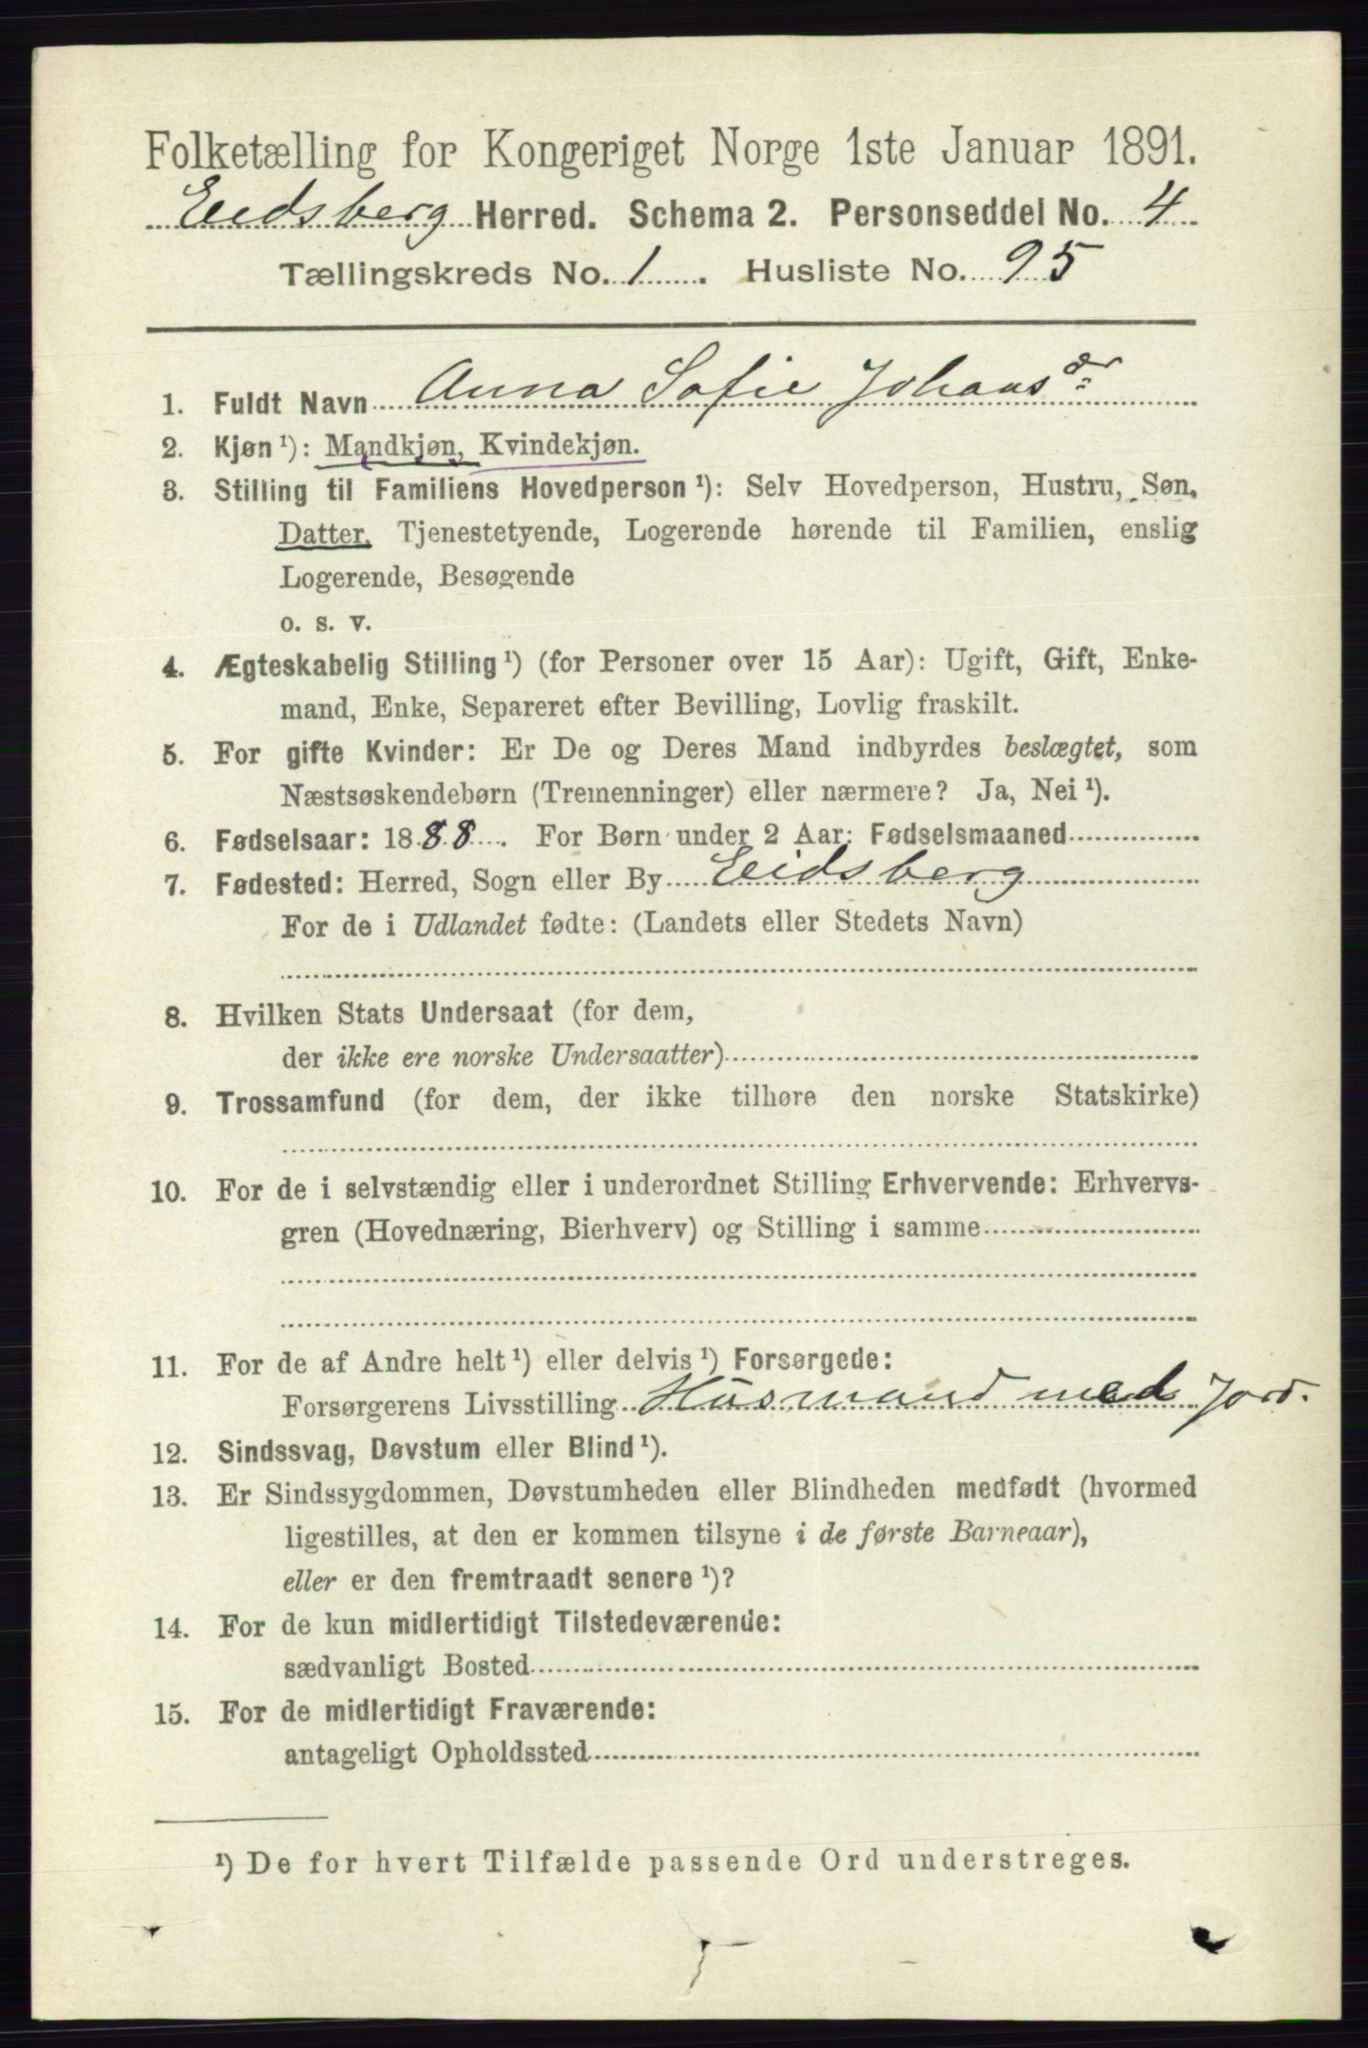 Folketælling for Kongeriget Norge 1ste Januar 1891.
Eidsberg Herred. Schema 2. Personseddel No. 4
Tællingskreds No. 1. Husliste No. 95
1. Fuldt Navn Anna Sofie Johansdr
2. Kjøn ¹): Mandkjøn, Kvindekjøn.
3. Stilling til Familiens Hovedperson ¹): Selv Hovedperson, Hustru, Søn,
Datter, Tjenestetyende, Logerende hørende til Familien, enslig
Logerende, Besøgende
o. s. v.
4. Ægteskabelig Stilling ¹) (for Personer over 15 Aar): Ugift, Gift, Enke-
mand, Enke, Separeret efter Bevilling, Lovlig fraskilt.
5. For gifte Kvinder: Er De og Deres Mand indbyrdes beslægtet, som
Næstsøskendebørn (Tremenninger) eller nærmere? Ja, Nei ¹).
6. Fødselsaar: 1888. For Børn under 2 Aar: Fødselsmaaned
7. Fødested: Herred, Sogn eller By Eidsberg
For de i Udlandet fødte: (Landets eller Stedets Navn)
8. Hvilken Stats Undersaat (for dem,
der ikke ere norske Undersaatter)
9. Trossamfund (for dem, der ikke tilhøre den norske Statskirke)
10. For de i selvstændig eller i underordnet Stilling Erhvervende: Erhvervs-
gren (Hovednæring, Bierhverv) og Stilling i samme
11. For de af Andre helt ¹) eller delvis ¹) Forsørgede:
Forsørgerens Livsstilling Husmand med Jord.
12. Sindssvag, Døvstum eller Blind ¹).
13. Er Sindssygdommen, Døvstumheden eller Blindheden medfødt (hvormed
ligestilles, at den er kommen tilsyne i de første Barneaar),
eller er den fremtraadt senere ¹)?
14. For de kun midlertidigt Tilstedeværende:
sædvanligt Bosted
15. For de midlertidigt Fraværende:
antageligt Opholdssted
¹) De for hvert Tilfælde passende Ord understreges.